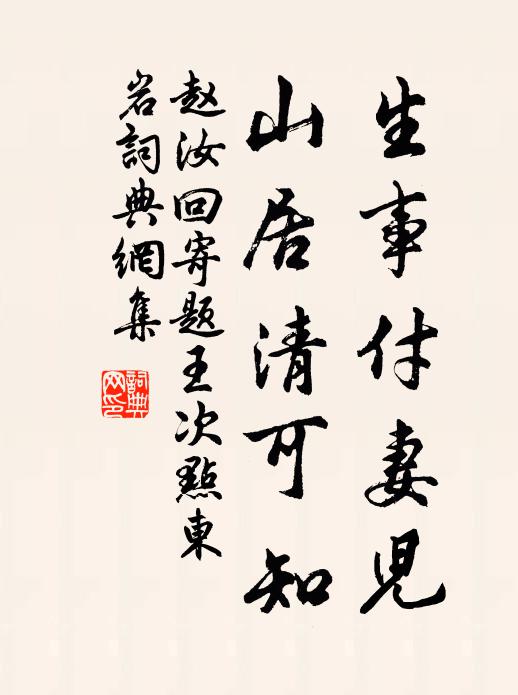 生事付妻児
山居清可知
赵汝回寄题王次點東
岩詞典網集
詞典
网印